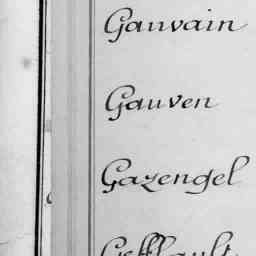 Gauvain
Gauven
Gazengel